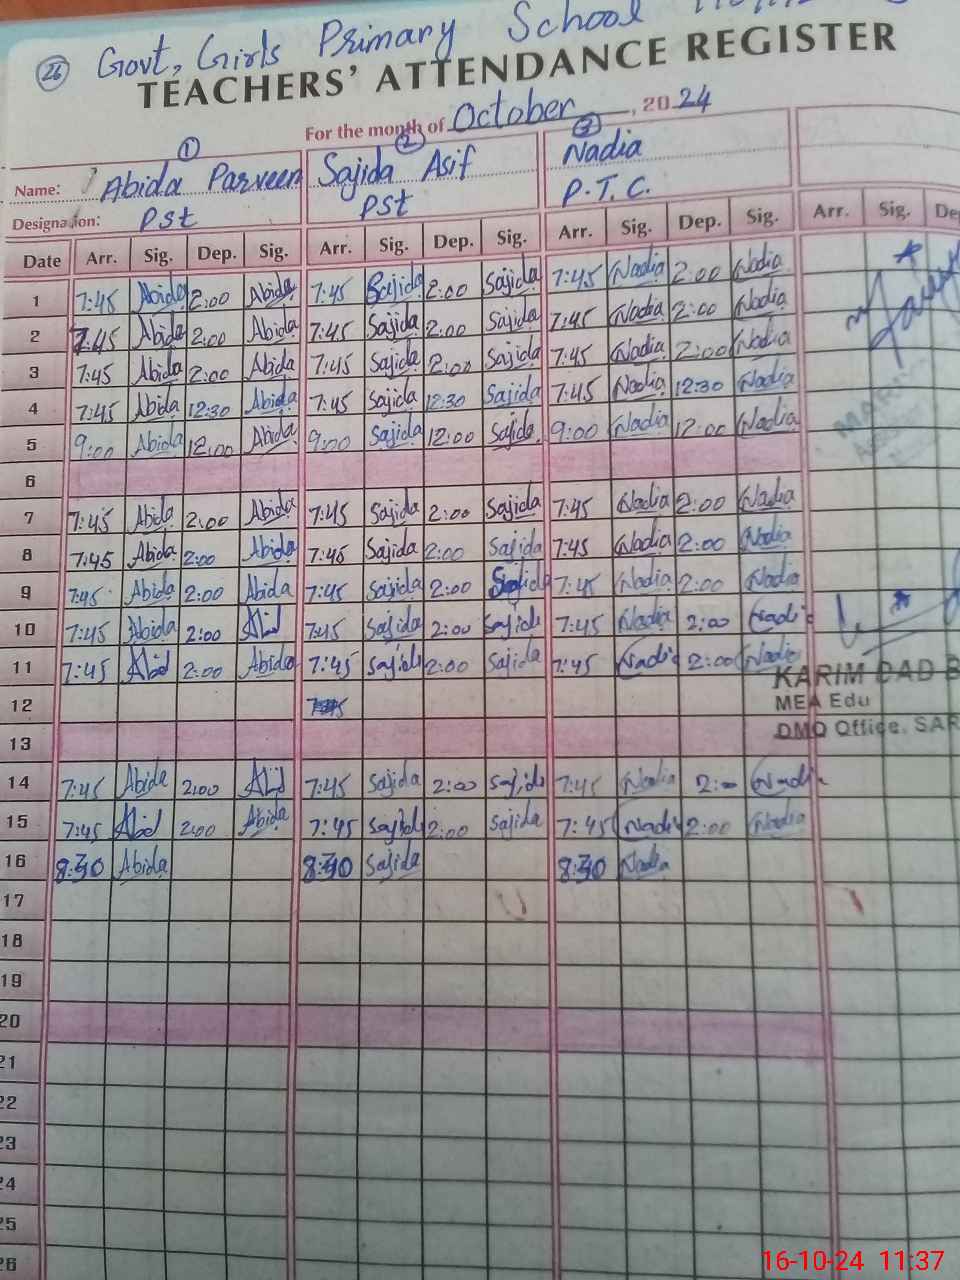 26 Govt, Girls Primary School
TEACHERS' ATTENDANCE REGISTER
For the month of October, 2024
1 2 3
Name: Abida Parveen Sajida Asif Nadia
Designation: PST PST P.T.C.
Date Arr. Sig. Dep. Sig. Arr. Sig. Dep. Sig. Arr. Sig. Dep. Sig. Arr. Sig. De
1 7:45 Abida 2:00 Abida 7:45 Sajida 2:00 Sajida 7:45 Nadia 2:00 Nadia
2 7:45 Abida 2:00 Abida 7:45 Sajida 2:00 Sajida 7:45 Nadia 2:00 Nadia
3 7:45 Abida 2:00 Abida 7:45 Sajida 2:00 Sajida 7:45 Nadia 2:00 Nadia
4 7:45 Abida 12:30 Abida 7:45 Sajida 12:30 Sajida 7:45 Nadia 12:30 Nadia
5 9:00 Abida 12:00 Abida 9:00 Sajida 12:00 Sajida 9:00 Nadia 12:00 Nadia
6
7 7:45 Abida 2:00 Abida 7:45 Sajida 2:00 Sajida 7:45 Nadia 2:00 Nadia
8 7:45 Abida 2:00 Abida 7:45 Sajida 2:00 Sajida 7:45 Nadia 2:00 Nadia
9 7:45 Abida 2:00 Abida 7:45 Sajida 2:00 Sajida 7:45 Nadia 2:00 Nadia
10 7:45 Abida 2:00 Abid 7:45 Sajida 2:00 Sajida 7:45 Nadia 2:00 Nadia
11 7:45 Abid 2:00 Abida 7:45 Sajida 2:00 Sajida 7:45 Nadia 2:00 Nadia
KARIM DAD B
12 7:45 MEA Edu
13 DMO Office, SAR
14 7:45 Abida 2:00 Abid 7:45 Sajida 2:00 Sajida 7:45 Nadia 2:00 Nadia
15 7:45 Abid 2:00 Abida 7:45 Sajida 2:00 Sajida 7:45 Nadia 2:00 Nadia
16 8:30 Abida 8:30 Sajida 8:30 Nadia
17
18
19
20
21
22
23
24
25
26
16-10-24 11:37